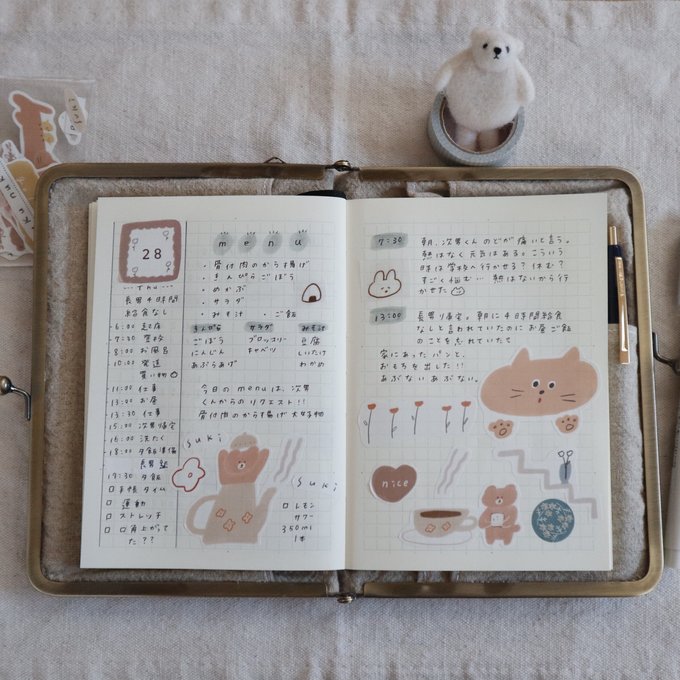 28
Thu
長男4時間
給食なし
6:00 起床
7:30 登校
8:00 お風呂
10:00 発送
買い物
11:00 仕事
13:00 お昼
13:30 仕事
15:00 次男帰宅
16:00 洗たく
18:00 夕飯準備
長男塾
19:30 夕飯
手帳タイム
運動
ストレッチ
口角上がってた??
menu
・骨付肉のから揚げ
・きんぴらごぼう
・めかぶ
・サラダ
・みそ汁 ・ご飯
きんぴら サラダ みそ汁
ごぼう ブロッコリー 豆腐
にんじん キャベツ しいたけ
あぶらあげ わかめ
今日のmenuは、次男
くんからのリクエスト!!
骨付肉のから揚げ 大好物
suki
suki
レモン
サワー
350ml
1本
7:30 朝、次男くんのどが痛いと言う。
熱はなく元気はある。こういう
時は学校へ行かせる?休む?
すごく悩む… 熱はないから行
かせた
13:00 長男くん帰宅。朝に4時間給食
なしと言われていたのにお昼ご飯
のことを忘れていたで
家にあったパンと、
おもちを出した!!
あぶないあぶない。
nice